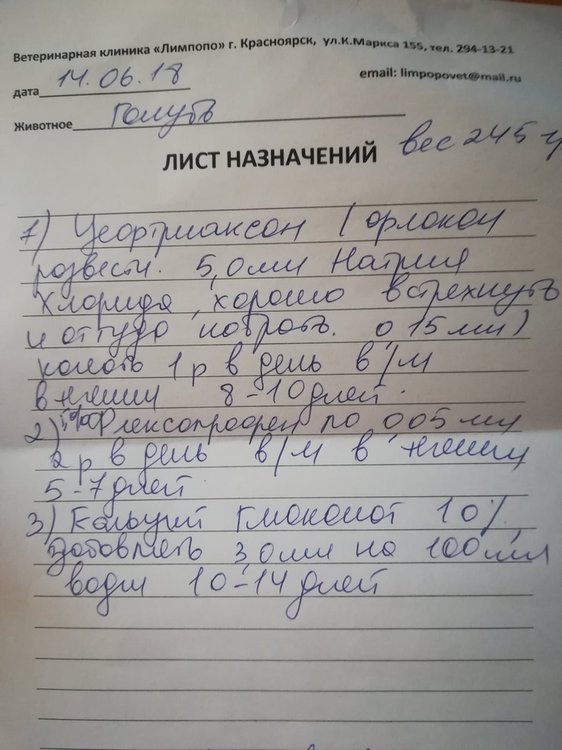 Ветеринарная клиника «Лимпопо» г. Красноярск, ул.К.Маркса 155, тел. 294-13-21
email: limpopovet@mail.ru
дата 14.06.18
Животное Голубь
ЛИСТ НАЗНАЧЕНИЙ вес 245 г
1) Цеортриаксон (орлокон
розвести. 5,0 мл Натрия
Хлорида, хорошо встрехнуть
и оттудо нобрать. 0,15 мл)
колоть 1 р в день в/м
в мышцу 8-10 дней.
2) Флексопрофен по 0,05 мл
2 р в день в/м в мышцу
5-7 дней
3) Кальций глюконат 10%
добовлять 3,0 мл на 100 мл
воды 10-14 дней